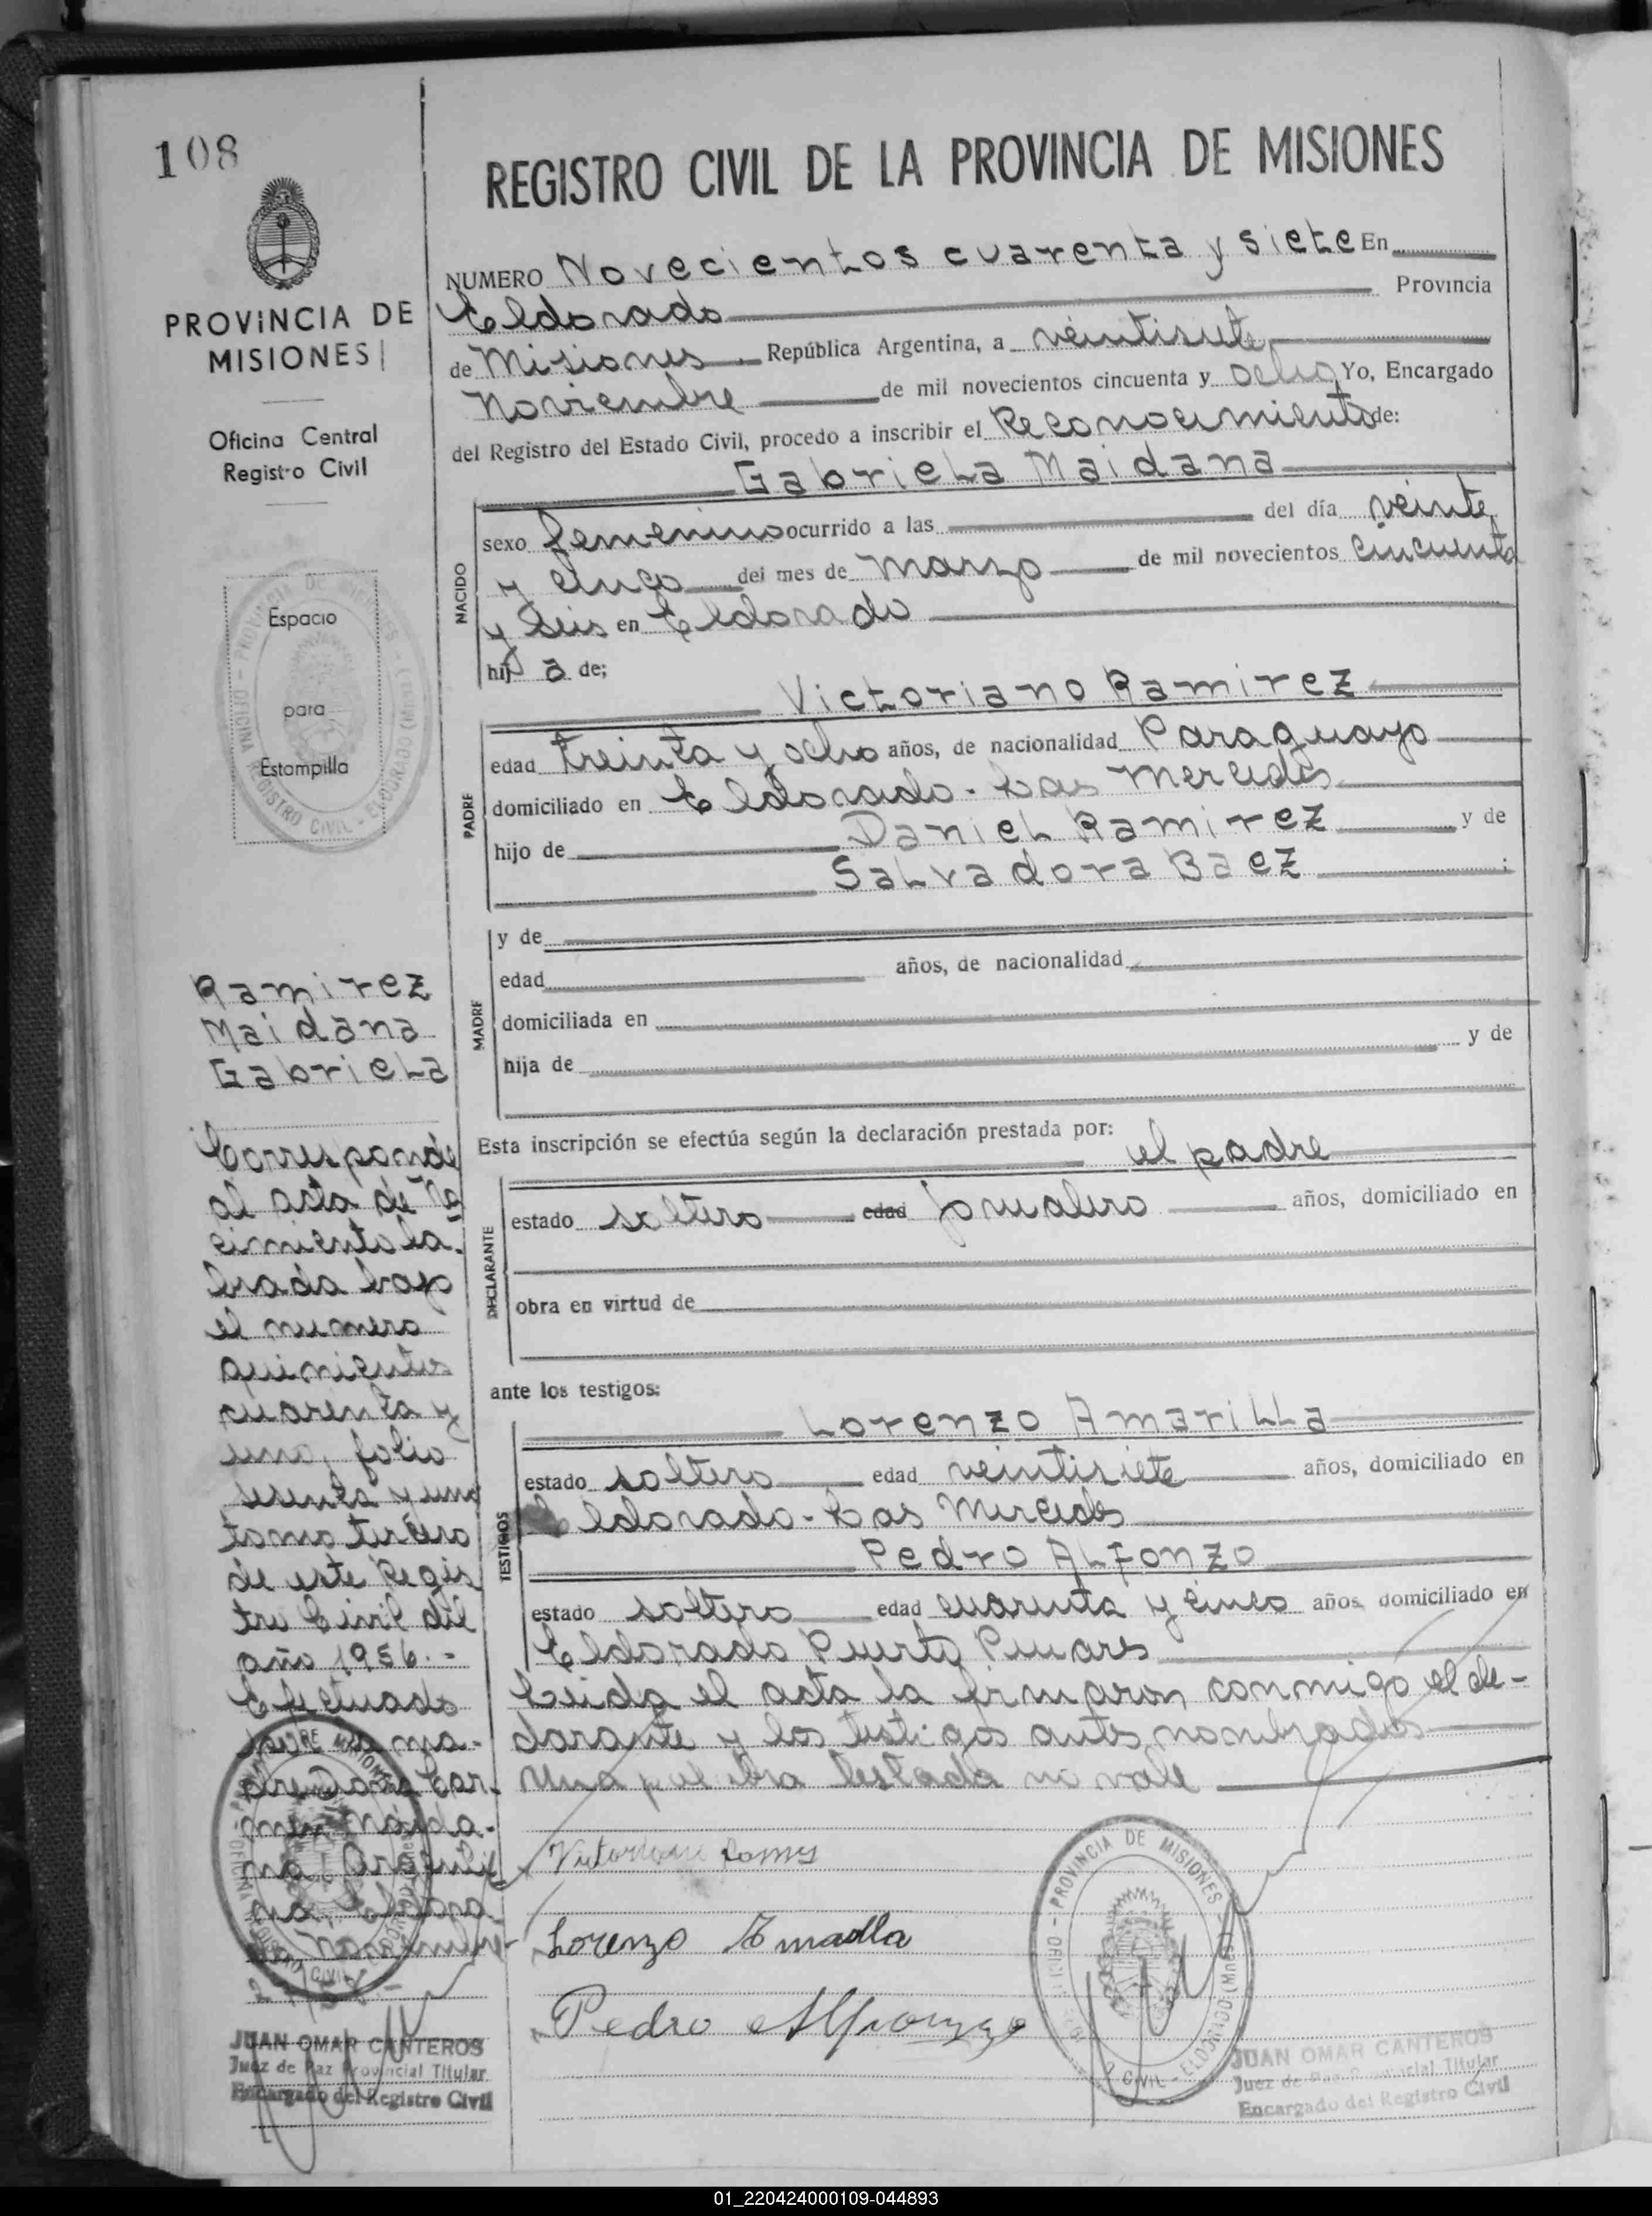 108
REGISTRO CIVIL DE LA PROVINCIA DE MISIONES
PROVINCIA DE
MISIONES
Oficina Central
Registro Civil
Espacio
para
Estampilla
NUMERO Novecientos cuarenta y siete En
Eldorado Provincia
de Misiones República Argentina, a veintisiete
Noviembre de mil novecientos cincuenta y ocho Yo, Encargado
del Registro del Estado Civil, procedo a inscribir el Reconocimiento de:
Gabriela Maidana
NACIDO
sexo femenino ocurrido a las del día veinte
y cinco del mes de marzo de mil novecientos cincuenta
y seis en Eldorado
hij a de;
Victoriano Ramirez
PADRE
edad treinta y ocho años, de nacionalidad Paraguayo
domiciliado en Eldorado - Las Mercedes
hijo de Daniel Ramirez y de
Salvadora Baez ;
MADRE
y de
edad años, de nacionalidad
domiciliada en
hija de y de
Esta inscripción se efectúa según la declaración prestada por:
el padre
DECLARANTE
estado soltero edad jornalero años, domiciliado en
obra en virtud de
ante los testigos:
TESTIGOS
Lorenzo Amarilla
estado soltero edad veintisiete años, domiciliado en
Eldorado - Las Mercedes
Pedro Alfonzo
estado soltero edad cuarenta y cinco años domiciliado en
Eldorado Puerto Pinares
Leida el acta la firmaron conmigo el de-
clarante y los testigos antes nombrados
Una palabra testada no vale
Lorenzo Amarilla
Pedro Alfonzo
Ramirez
Maidana
Gabriela
Corresponde
al acta de Na
cimiento la-
brada bajo
el numero
quinientos
cuarenta y
uno, folio
sesenta y uno
tomo tercero
de este Regis
tro Civil del
año 1956.-
Efectuado
por la ma-
dre Car-
men Maida-
na
PROVINCIA DE MISIONES - OFICINA REGISTRO CIVIL - ELDORADO (Mnes.)
JUAN OMAR CANTEROS
Juez de Paz Provincial Titular
Encargado del Registro Civil
PROVINCIA DE MISIONES - CIVIL - ELDORADO (Mnes.)
JUAN OMAR CANTEROS
Juez de Paz Provincial Titular
Encargado del Registro Civil
01_220424000109-044893